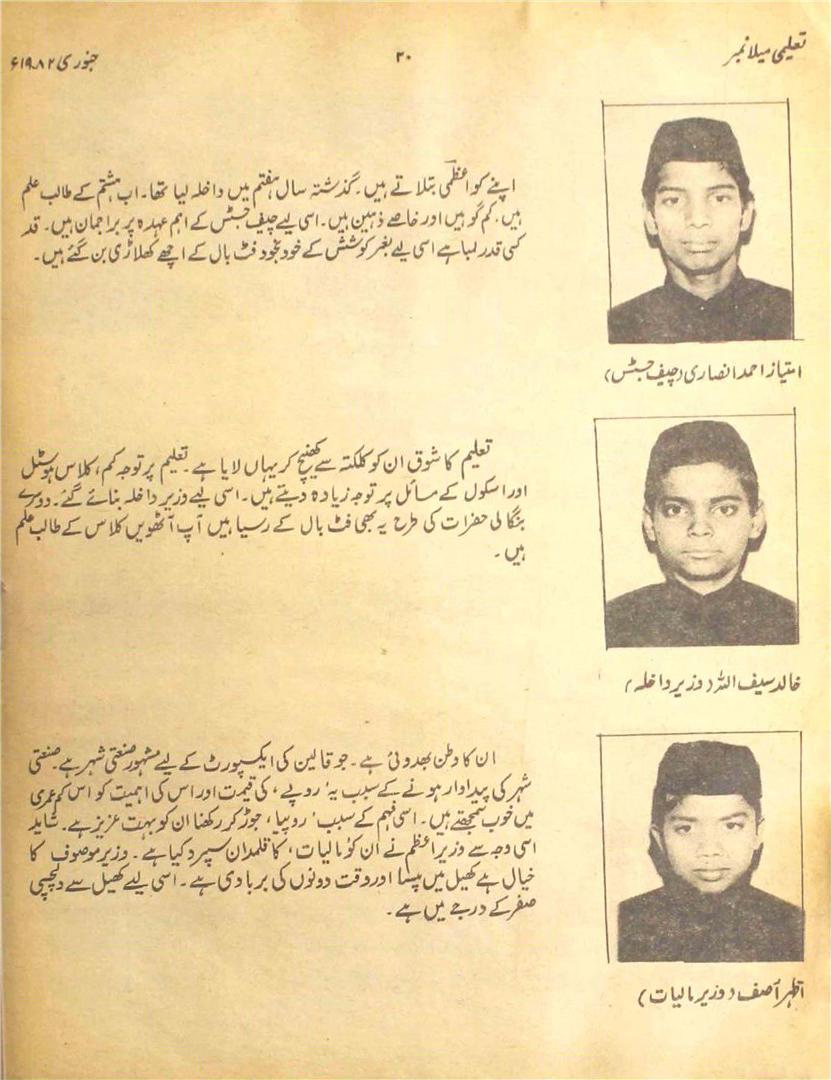 تعلیمی میلا نمبر
۲۰
جنوری ۱۹۸۲ء
اپنے کو اعظمیؔ بتلاتے ہیں۔ گذشتہ سال ہفتم میں داخلہ لیا تھا۔ اب ہشتم کے طالب علم
ہیں۔ کم گو ہیں اور خاصے ذہین ہیں۔ اسی لیے چیف جسٹس کے اہم عہدہ پر براجمان ہیں۔ قد
کسی قدر لمبا ہے اسی لیے بغیر کوشش کے خود بخود فٹ بال کے اچھے کھلاڑی بن گئے ہیں۔
امتیاز احمد انصاری (چیف جسٹس)
تعلیم کا شوق ان کو کلکتہ سے کھینچ کر یہاں لایا ہے۔ تعلیم پر توجہ کم، کلاس ہوسٹل
اور اسکول کے مسائل پر توجہ زیادہ دیتے ہیں۔ اسی لیے وزیر داخلہ بنائے گئے۔ دوسرے
بنگالی حضرات کی طرح یہ بھی فٹ بال کے رسیا ہیں آپ آٹھویں کلاس کے طالب علم
ہیں۔
خالد سیف اللہ (وزیر داخلہ)
ان کا وطن بھدوئی ہے۔ جو قالین کی ایکسپورٹ کے لیے مشہور صنعتی شہر ہے۔ صنعتی
شہر کی پیداوار ہونے کے سبب یہ 'روپے' کی قیمت اور اس کی اہمیت کو اس کم عمری
میں خوب سمجھتے ہیں۔ اسی فہم کے سبب 'روپیا' جوڑ کر رکھنا ان کو بہت عزیز ہے۔ شاید
اسی وجہ سے وزیر اعظم نے ان کو 'مالیات' کا قلمدان سپرد کیا ہے۔ وزیر موصوف کا
خیال ہے کھیل میں پیسا اور وقت دونوں کی بربادی ہے۔ اسی لیے کھیل سے دلچسپی
صفر کے درجے میں ہے۔
اظہر آصف (وزیر مالیات)